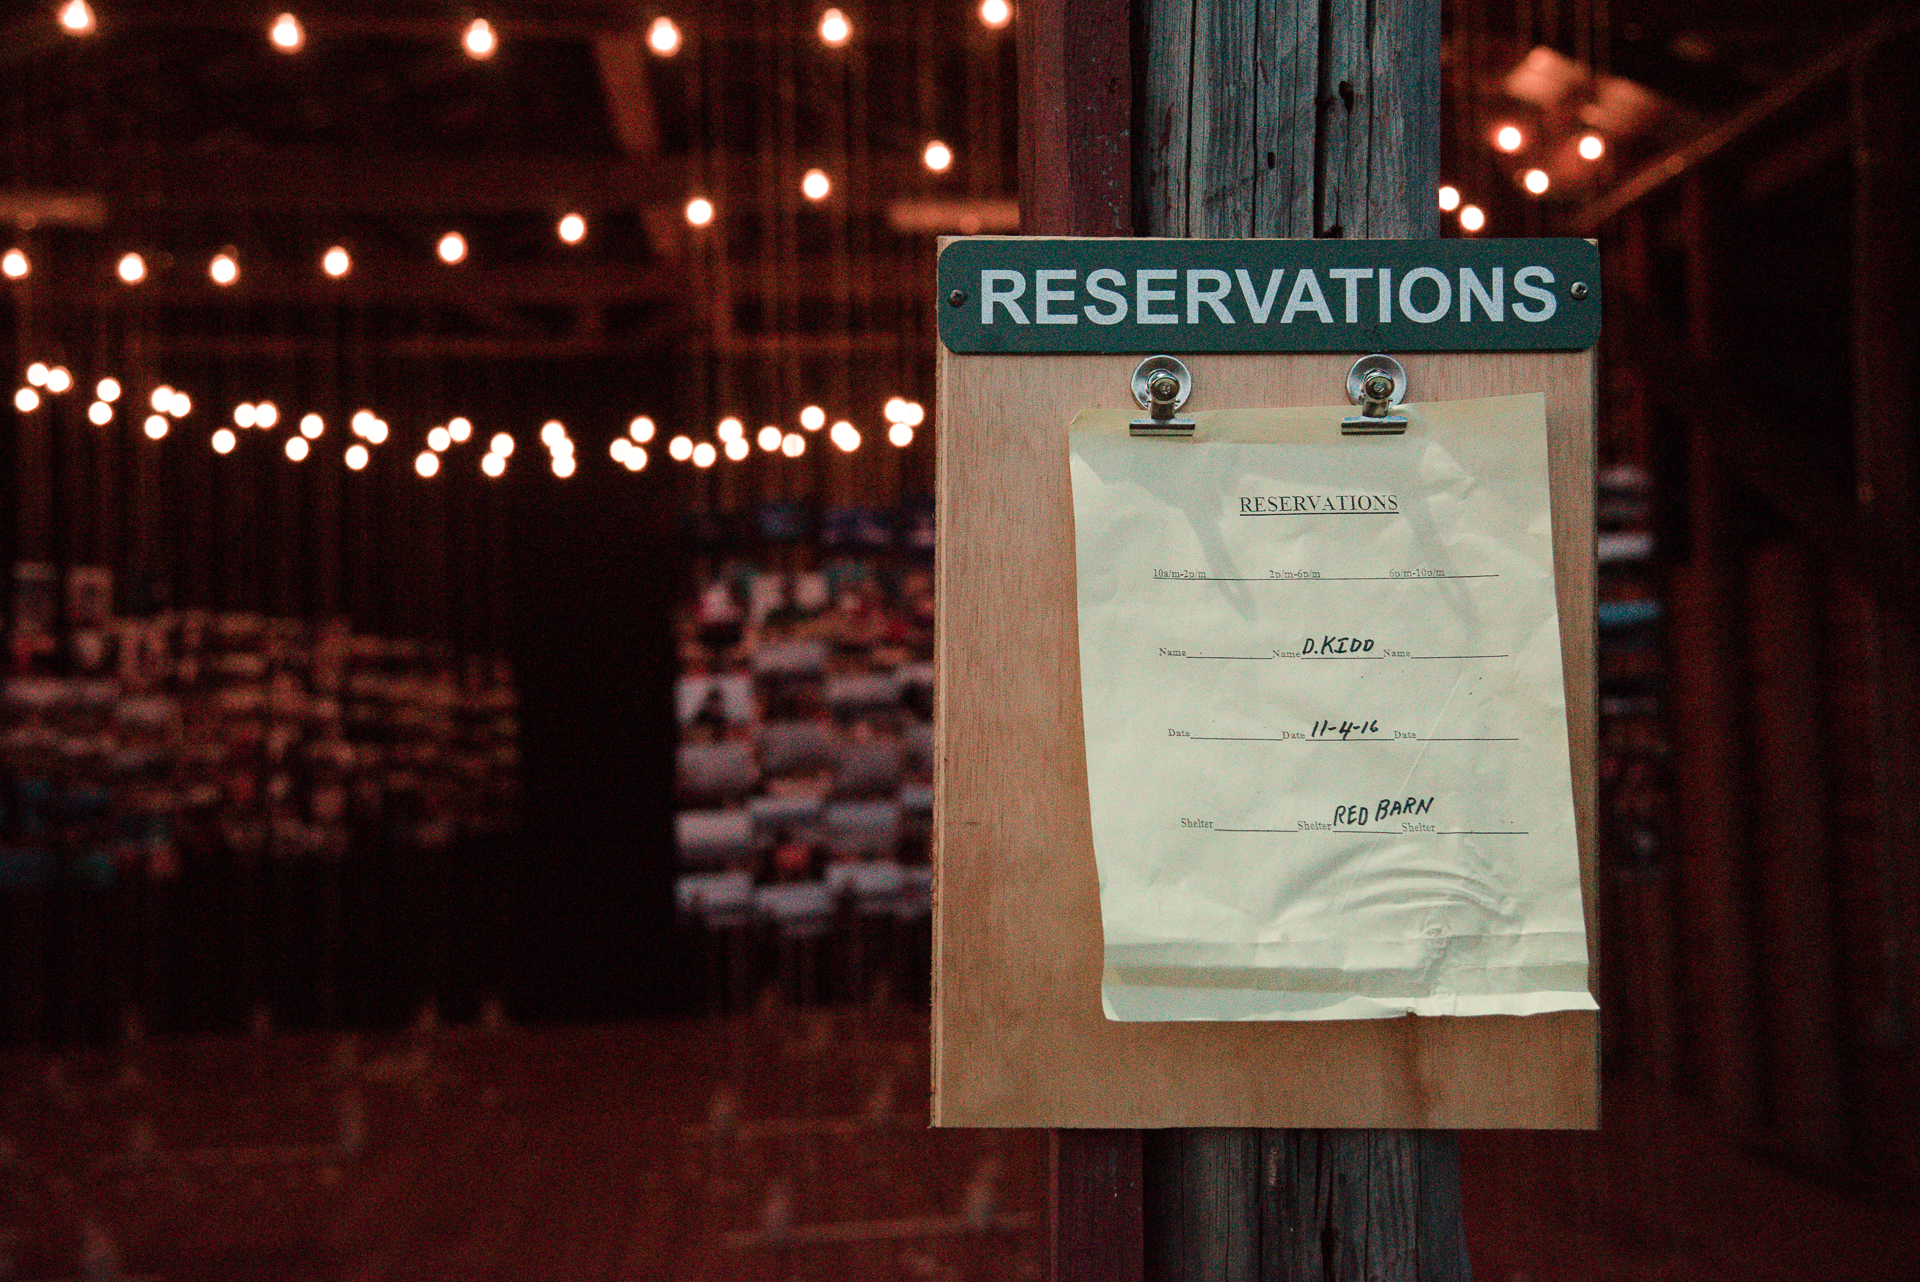 RESERVATIONS
RESERVATIONS
10a/m-2p/m 2p/m-6p/m 6p/m-10p/m
Name Name D.KIDD Name
Date Date 11-4-16 Date
Shelter Shelter RED BARN Shelter